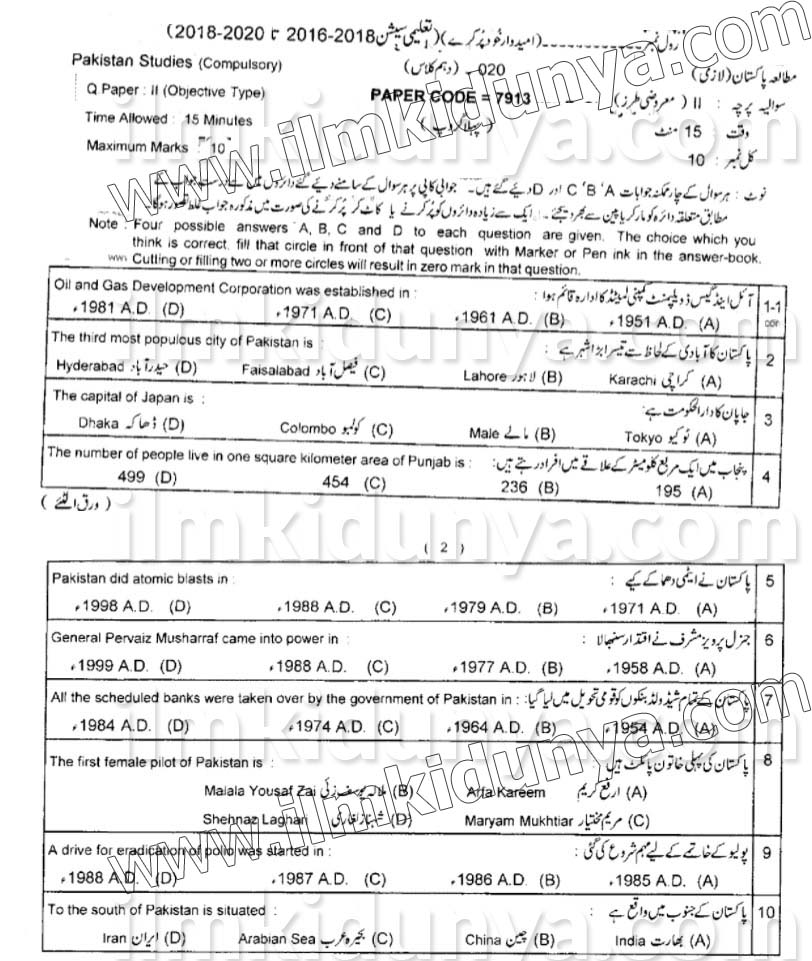 رول نمبر ----------(امیدوار خود پُر کرے)(تعلیمی سیشن 2018-2016 تا 2020-2018)
Pakistan Studies (Compulsory) (دہم کلاس) 020 مطالعہ پاکستان (لازمی)
Q.Paper : II (Objective Type) PAPER CODE = 7913 سوالیہ پرچہ : II (معروضی طرز)
Time Allowed : 15 Minutes (پہلا گروپ) وقت : 15 منٹ
Maximum Marks : 10 کل نمبر : 10
نوٹ : ہر سوال کے چار ممکنہ جوابات A ،B ،C اور D دیے گئے ہیں۔ جوابی کاپی پر ہر سوال کے سامنے دیے گئے دائروں میں سے درست جواب کے
مطابق متعلقہ دائرہ کو مارکر یا پین سے بھر دیجئے۔ ایک سے زیادہ دائروں کو پُر کرنے یا کاٹ کر پُر کرنے کی صورت میں مذکورہ جواب غلط تصور ہوگا۔
Note : Four possible answers A, B, C and D to each question are given. The choice which you
think is correct, fill that circle in front of that question with Marker or Pen ink in the answer-book.
Cutting or filling two or more circles will result in zero mark in that question.
Oil and Gas Development Corporation was established in : آئل اینڈ گیس ڈویلپمنٹ کمپنی لمیٹڈ کا ادارہ قائم ہوا : 1-1
ء1981 A.D. (D) ء1971 A.D. (C) ء1961 A.D. (B) ء1951 A.D. (A)
The third most populous city of Pakistan is : پاکستان کا آبادی کے لحاظ سے تیسرا بڑا شہر ہے : 2
Hyderabad حیدرآباد (D) Faisalabad فیصل آباد (C) Lahore لاہور (B) Karachi کراچی (A)
The capital of Japan is : جاپان کا دارالحکومت ہے : 3
Dhaka ڈھاکہ (D) Colombo کولمبو (C) Male مالے (B) Tokyo ٹوکیو (A)
The number of people live in one square kilometer area of Punjab is : پنجاب میں ایک مربع کلومیٹر کے علاقے میں افراد رہتے ہیں : 4
499 (D) 454 (C) 236 (B) 195 (A)
(ورق الٹئے)
( 2 )
Pakistan did atomic blasts in : پاکستان نے ایٹمی دھماکے کیے : 5
ء1998 A.D. (D) ء1988 A.D. (C) ء1979 A.D. (B) ء1971 A.D. (A)
General Pervaiz Musharraf came into power in : جنرل پرویز مشرف نے اقتدار سنبھالا : 6
ء1999 A.D. (D) ء1988 A.D. (C) ء1977 A.D. (B) ء1958 A.D. (A)
All the scheduled banks were taken over by the government of Pakistan in : پاکستان کے تمام شیڈولڈ بنکوں کو قومی تحویل میں لیا گیا : 7
ء1984 A.D. (D) ء1974 A.D. (C) ء1964 A.D. (B) ء1954 A.D. (A)
The first female pilot of Pakistan is : پاکستان کی پہلی خاتون پائلٹ ہیں : 8
Malala Yousaf Zai ملالہ یوسف زئی (B) Arfa Kareem ارفع کریم (A)
Shehnaz Laghari شہناز لغاری (D) Maryam Mukhtiar مریم مختیار (C)
A drive for eradication of polio was started in : پولیو کے خاتمے کے لیے مہم شروع کی گئی : 9
ء1988 A.D. (D) ء1987 A.D. (C) ء1986 A.D. (B) ء1985 A.D. (A)
To the south of Pakistan is situated : پاکستان کے جنوب میں واقع ہے : 10
Iran ایران (D) Arabian Sea بحیرہ عرب (C) China چین (B) India بھارت (A)
www.ilmkidunya.com
ilmkidunya.com
ilmkidunya.com
www.ilmkidunya.com